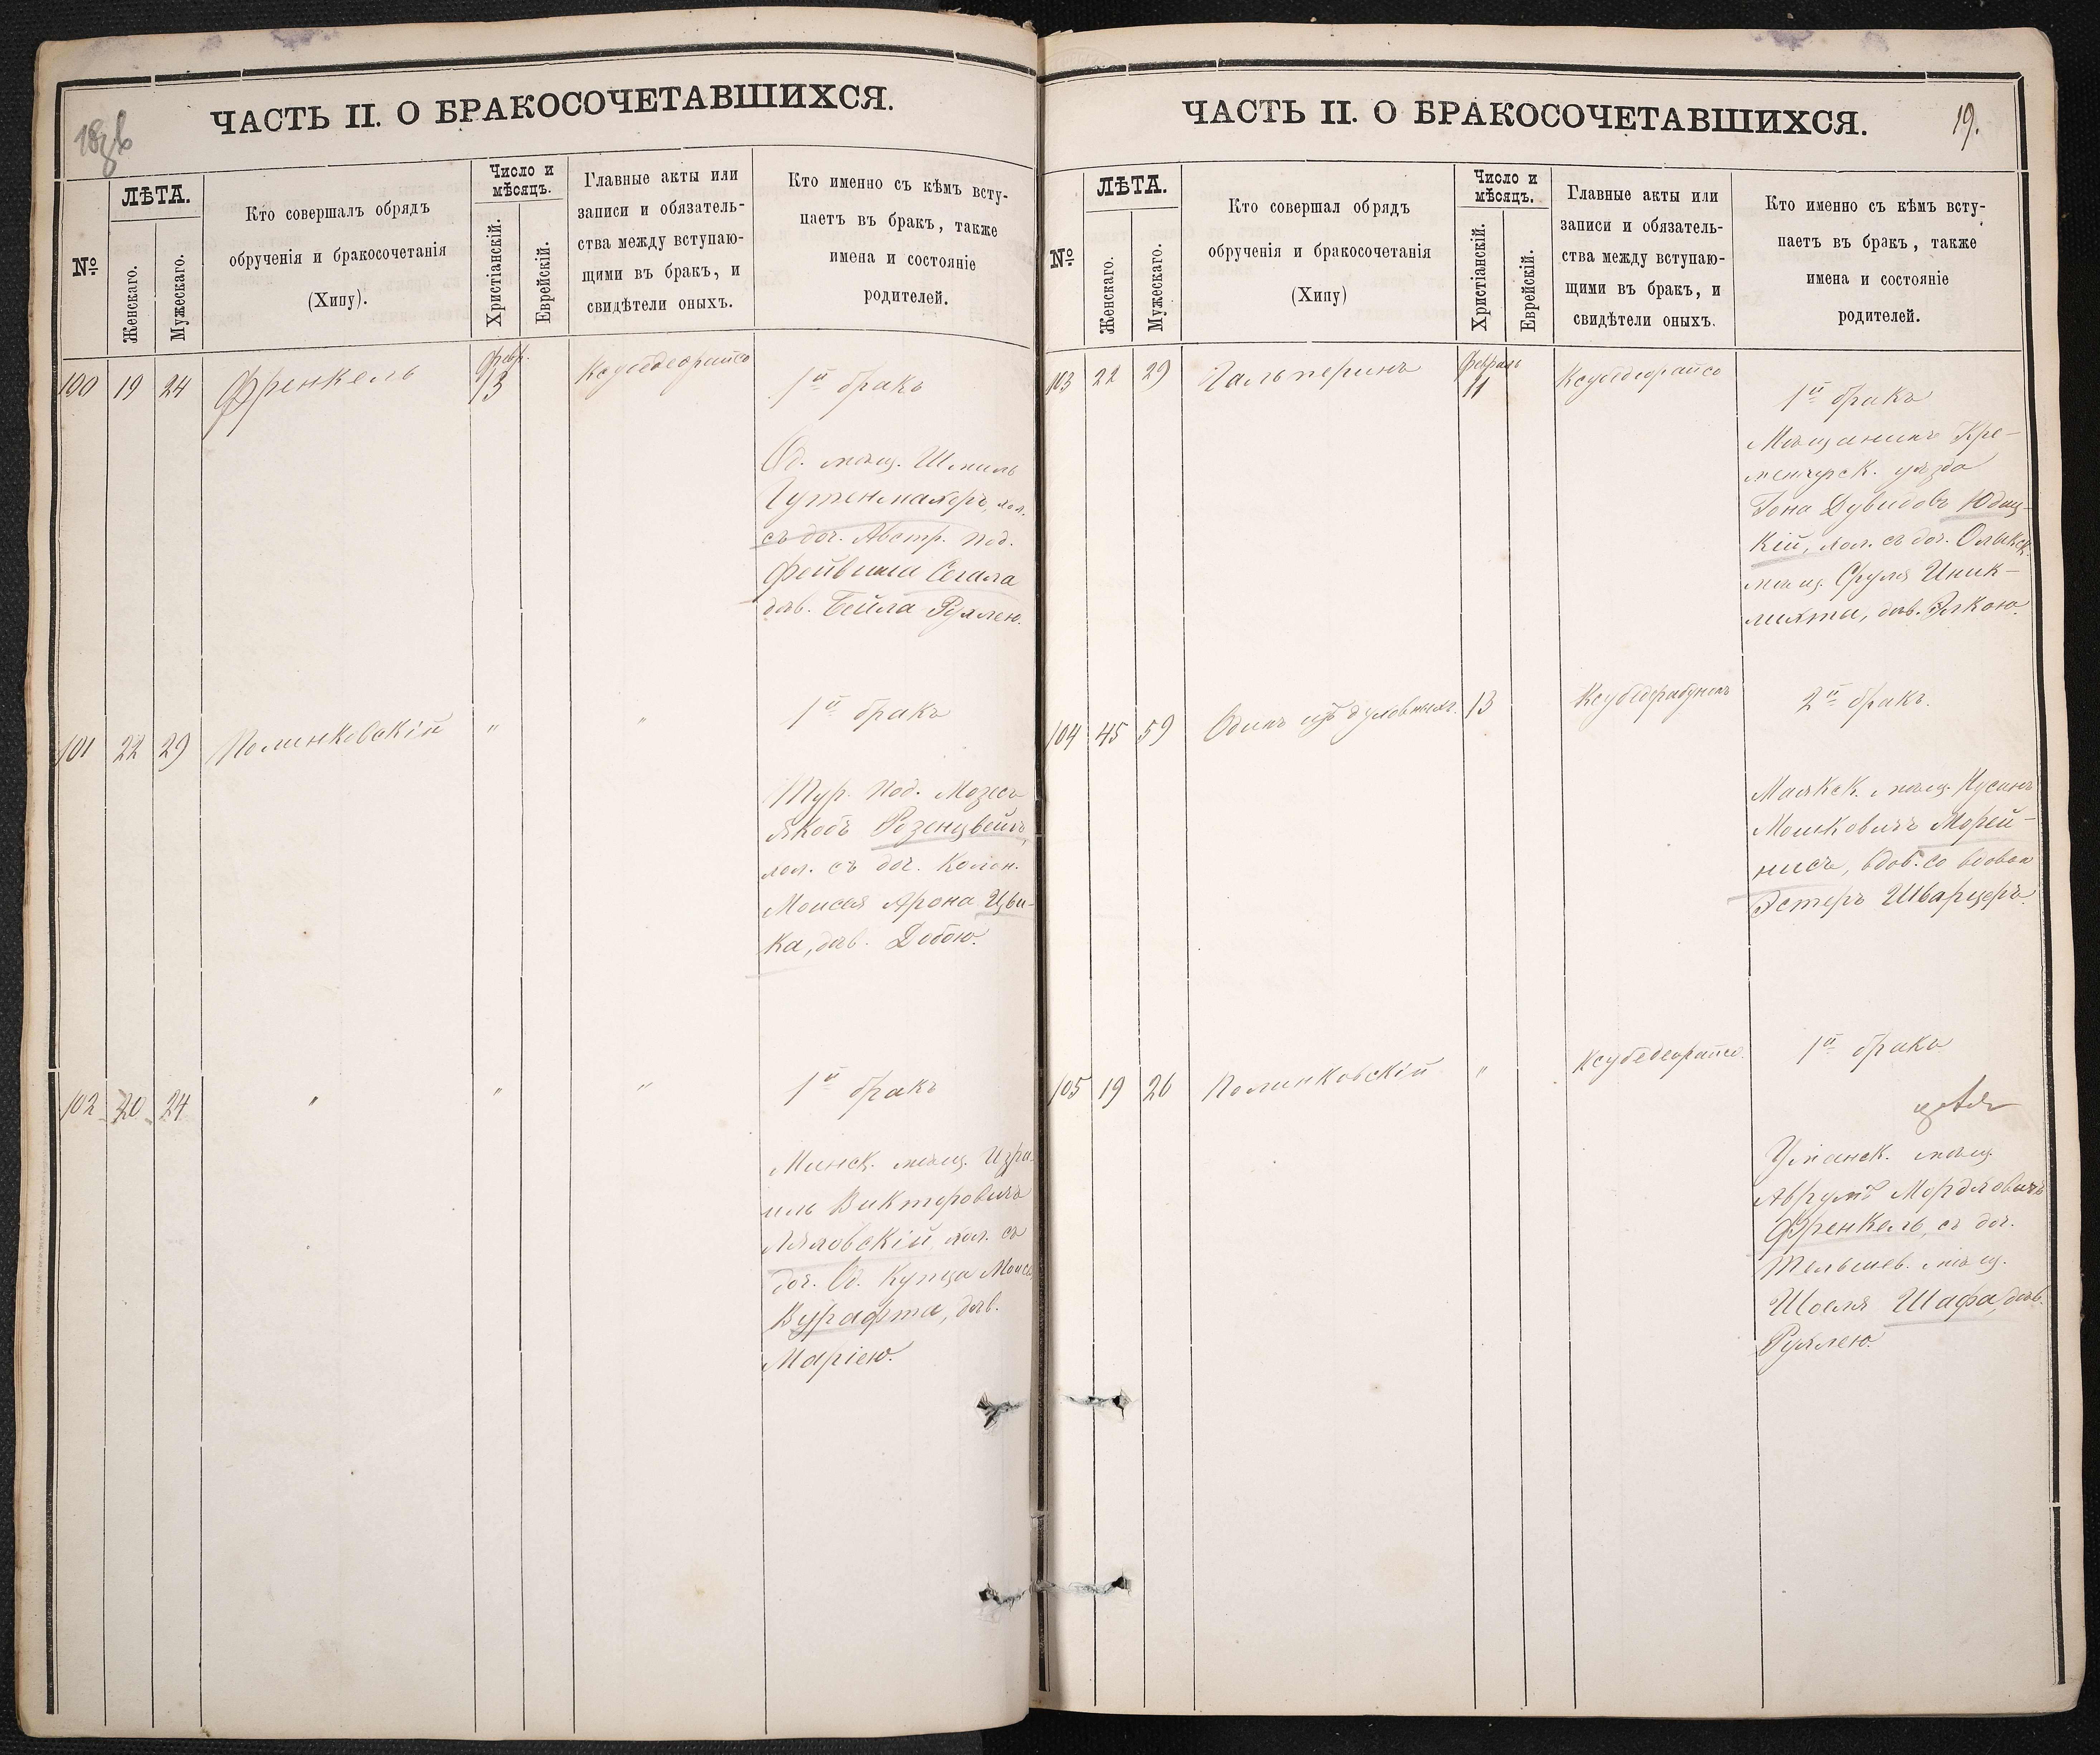 ЧАСТЬ II. О БРАКОСОЧЕТАВШИХСЯ.
№
ЛѢТА.
Женскаго.
Мужескаго.
Кто совершалъ обрядъ
обрученія и бракосочетанія
(Хипу).
Число и
мѣсяцъ.
Христіанскій.
Еврейскій.
Главные акты или
записи и обязатель-
ства между вступаю-
щими въ бракъ, и
свидѣтели оныхъ.
Кто именно съ кѣмъ всту-
паетъ въ бракъ, также
имена и состояніе
родителей.
100 19 24 Френкель Февр. 13 Ксубедеорайсо
1й бракъ
Од. мѣщ. Шмиль
Гутенмахеръ, хол.
съ доч. Австр. под.
Фейвиша Сегала
дѣв. Бейла Рухлею.
101 22 29 Полинковскій " "
1й бракъ
Тур. под. Мозесъ
Якобъ Розенцвейгъ,
хол. съ доч. Колон.
Моисея Арона Цви-
ка, дѣв. Добою.
102 20 24 " " "
1й бракъ
Минск. мѣщ. Изра-
иль Викторовичъ
Ляховскій хол. съ
доч. Од. Купца Моис.
Вурафта, дѣв.
Маріею.
ЧАСТЬ II. О БРАКОСОЧЕТАВШИХСЯ.
19.
№
ЛѢТА.
Женскаго.
Мужескаго.
Кто совершал обрядъ
обрученія и бракосочетанія
(Хипу)
Число и
мѣсяцъ.
Христіанскій.
Еврейскій.
Главные акты или
записи и обязатель-
ства между вступаю-
щими въ бракъ, и
свидѣтели оныхъ.
Кто именно съ кѣмъ всту-
паетъ въ бракъ, также
имена и состояніе
родителей.
103 22 29 Гальперинъ Февраль 11 Ксубедеорайсо
1й бракъ
Мѣщанинъ Кре-
менчугск. уѣзда
Іона Дувидовъ Юдиц-
кій, хол. съ доч.
мѣщ. Сруля Иник-
лихта, дѣв.
104 45 59 Одинъ изъ духовныхъ. 13
2й бракъ.
Маякск. мѣщ. Нусинъ
Мошковичъ Морей-
нисъ, вдов. со вдовою
Эстеръ Шварцеръ.
105 19 26 Полинковскій " Ксубедеорайсо.
1й бракъ
Уманск. мѣщ.
Аврумъ Мордковичъ
Френкель, съ доч.
Тельшев. мѣщ.
Шоеля Шафа, дѣв.
Рухлею.